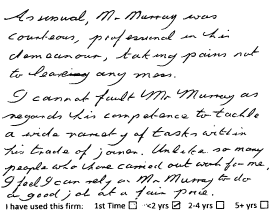 As usual, Mr Murray was
courteous, professional in his
demeanour, taking pains not
to leaving any mess.
I cannot fault Mr Murray as
regards his competence to tackle
a wide variety of tasks within
his trade of joiner. Unlike so many
people who have carried out work for me,
I feel I can rely on Mr. Murray to do
a good job at a fair price.
I have used this firm: 1st Time <2 yrs 2-4 yrs 5+ yrs